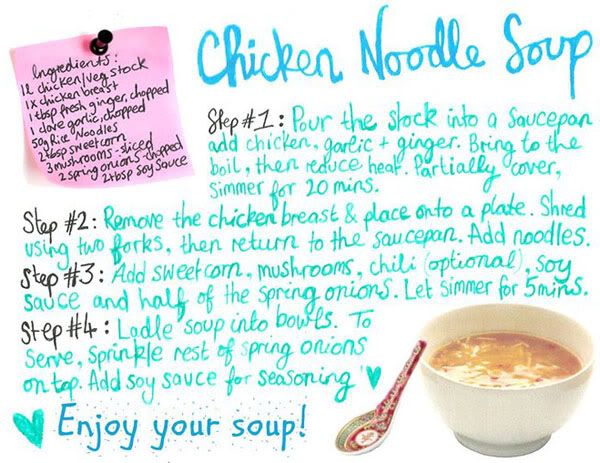 Chicken Noodle Soup
Ingredients:
1l chicken/veg stock
1x chicken breast
1 tbsp fresh ginger, chopped
1 clove garlic, chopped
50g Rice Noodles
2 tbsp sweetcorn
3 mushrooms - sliced
2 spring onions - chopped
2 tbsp soy sauce
Step #1: Pour the stock into a saucepan
add chicken, garlic + ginger. Bring to the
boil, then reduce heat. Partially cover,
simmer for 20 mins.
Step #2: Remove the chicken breast & place onto a plate. Shred
using two forks, then return to the saucepan. Add noodles.
Step #3: Add sweetcorn, mushrooms, chili (optional), soy
sauce and half of the spring onions. Let simmer for 5 mins.
Step #4: Ladle soup into bowls. To
serve, sprinkle rest of spring onions
on top. Add soy sauce for seasoning
Enjoy your soup!